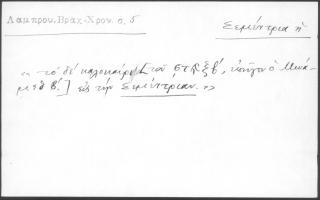 Λαμπρου. Βραχ. Χρον. σ. 5
Σεμέντρια ἡ
« τὸ δὲ καλοκαίρι [τοῦ ϛ ϡ ξβ', ὑπῆγεν ὁ Μεχέ-
μετ β'.] εἰς τὴν Σεμέντριαν. »